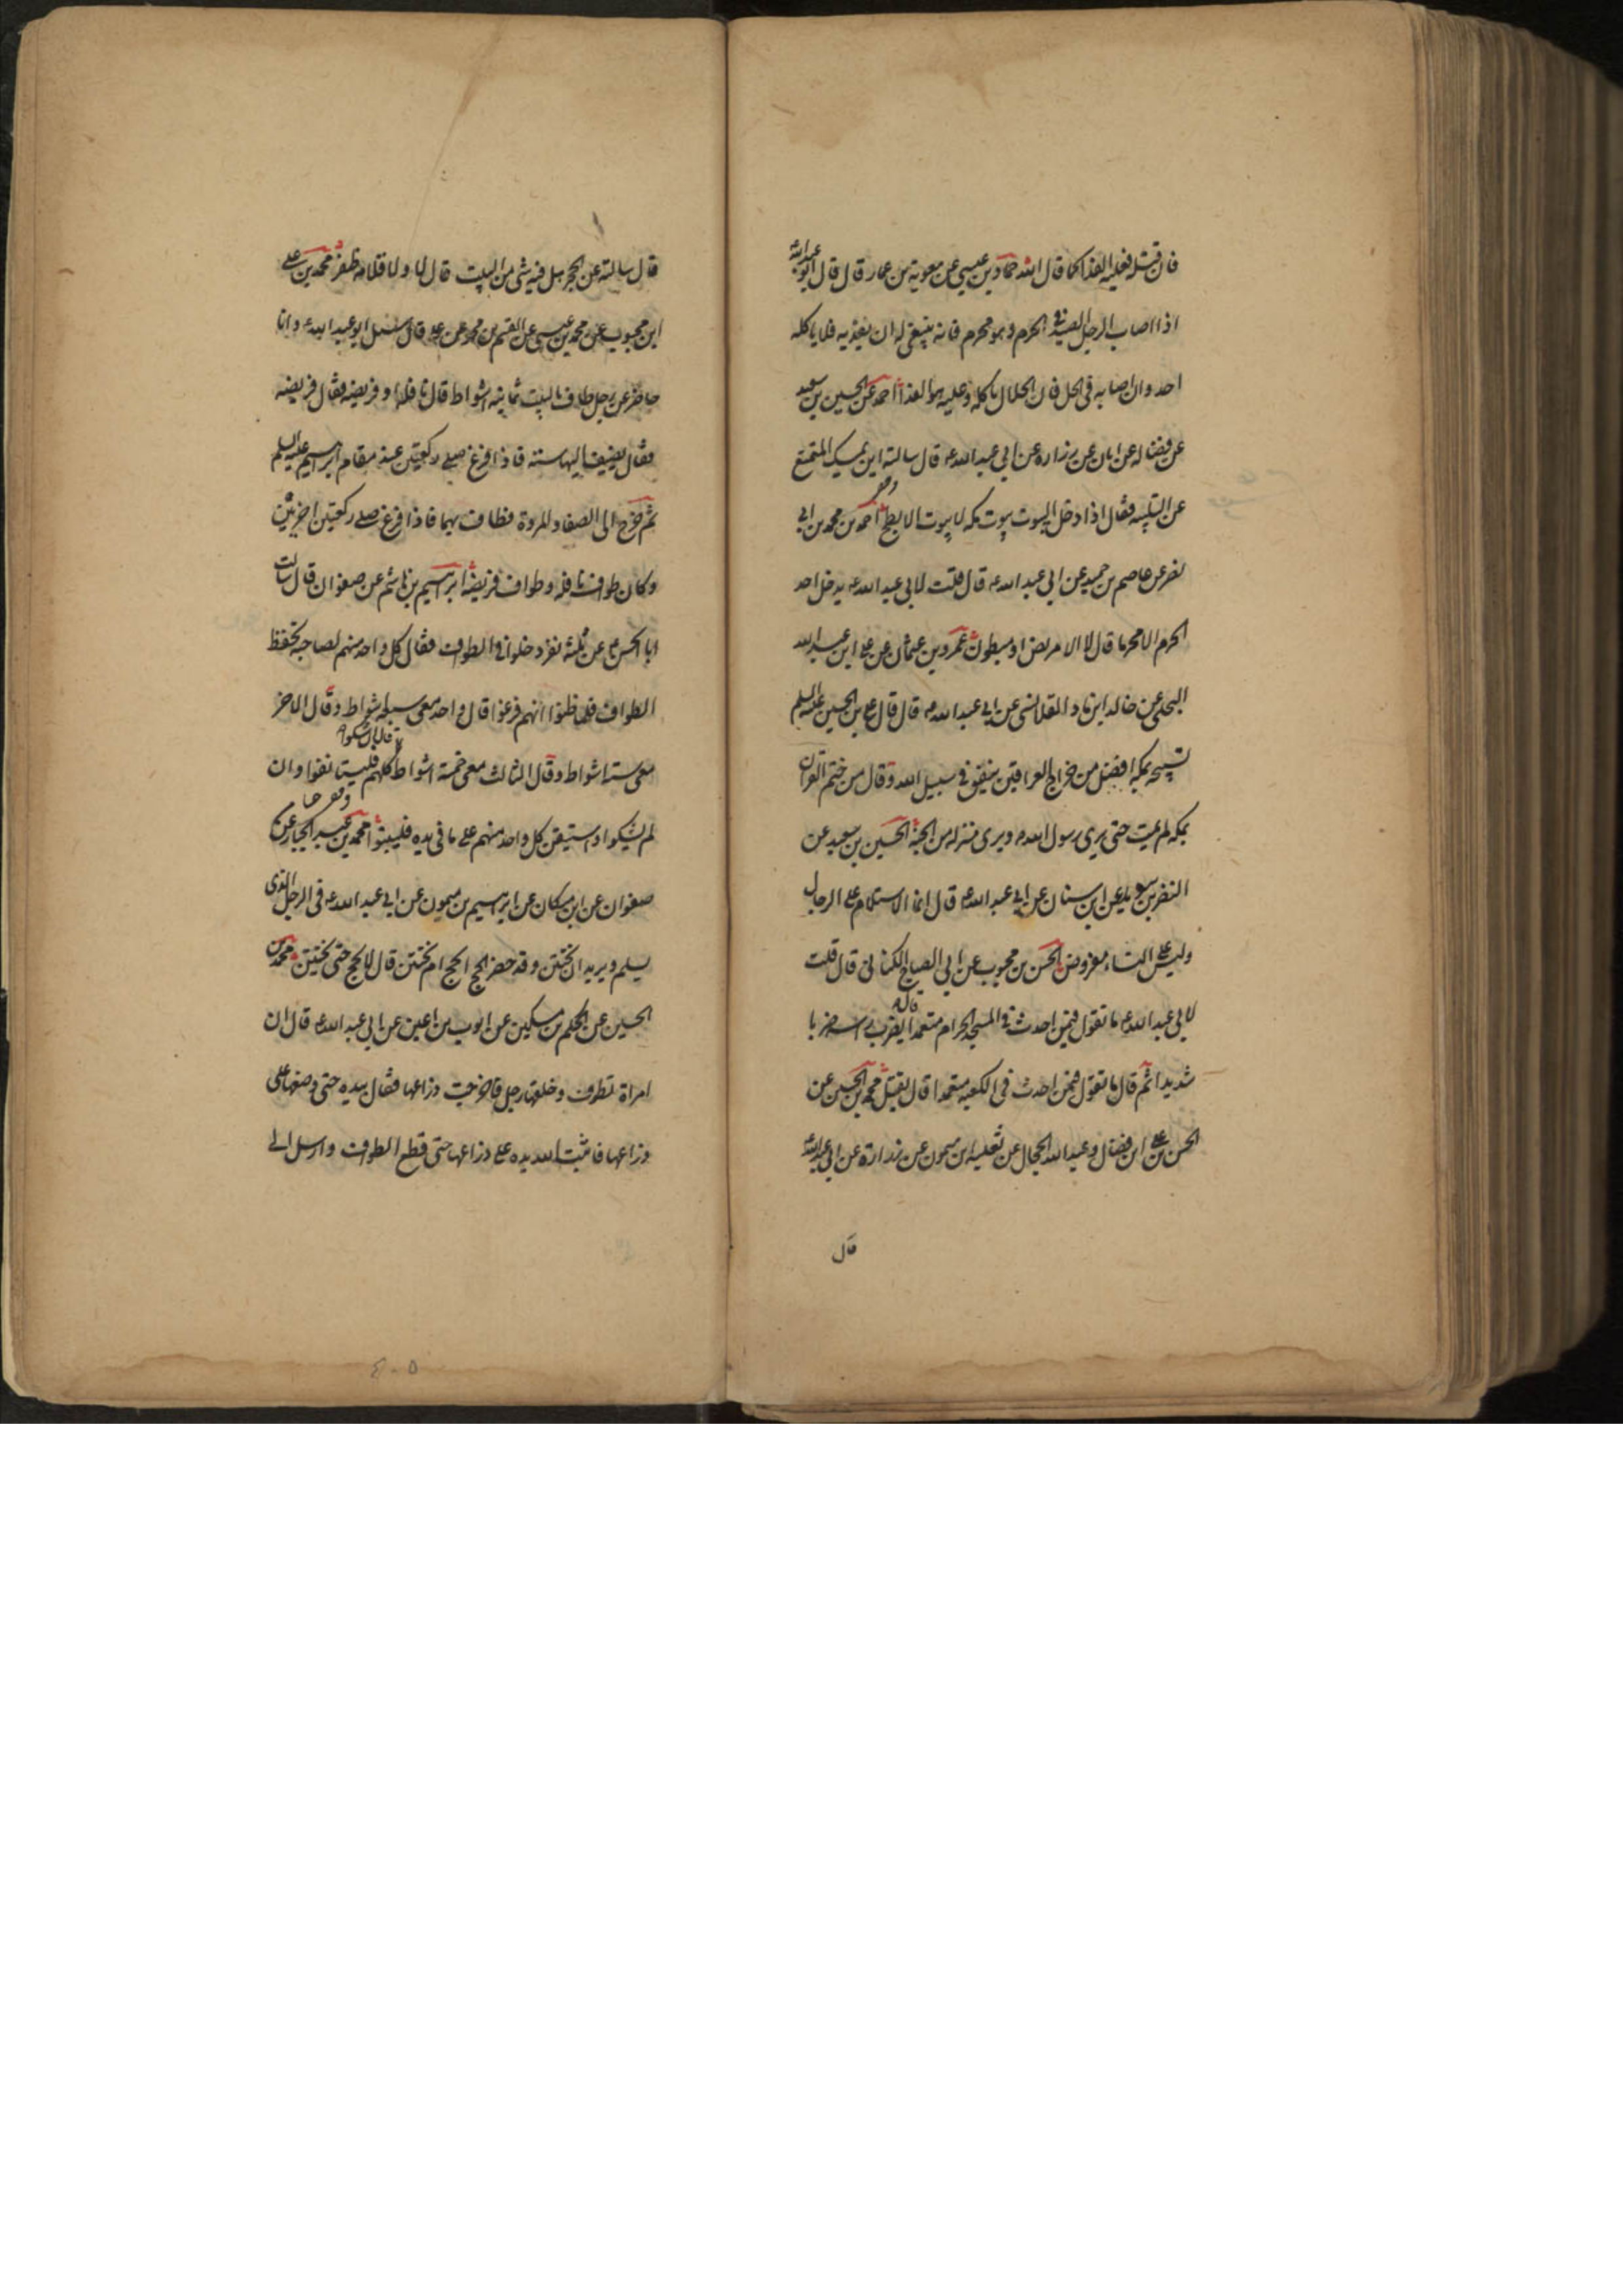 فان قتله فعليه الفدا كما قال الله حماد بن عيسى عن معوية بن عمار قال قال ابو عبدالله
اذا اصاب الرجل الصيد في الحرم وهو محرم فانه ينبغي له ان يفديه فلا ياكله
احد وان اصابه في الحل فان الحلال ياكله وعليه هو الفدا احمد عن الحسين بن سعيد
عن فضاله عن ابان عن زراره عن ابي عبد الله ع قال سالته اين يمسك المتمتع
عن التلبيه فقال اذا دخل البيوت بيوت مكه لا بيوت الابطح احمد بن محمد بن ابي
نصر عن عاصم بن حميد عن ابي عبد الله ع قال قلت لابي عبد الله ع يدخل احد
الحرم الا محرما قال لا الا مريض او مبطون عمرو بن عثمان عن علي ابن عبد الله
البجلي عن خالد ابن ماد القلانسي عن ابي عبد الله ع قال قال علي بن الحسين عليه السلم
تسبيحه بمكه افضل من خراج العراقين ينفق في سبيل الله وقال من ختم القران
بمكه لم يمت حتى يرى رسول الله ص ويرى منزله من الجنة الحسين بن سعيد عن
النضر بن سويد عن ابن سنان عن ابي عبد الله ع قال انما الاستلام على الرجال
وليس على النساء مفروض الحسن بن محبوب عن ابي الصباح الكناني قال قلت
لابي عبد الله ع ما تقول فيمن احدث في المسجد الحرام متعمدا قال يضرب راسه ضربا
شديدا ثم قال ما تقول فيمن احدث في الكعبه متعمدا قال يقتل محمد بن الحسين عن
الحسن بن علي ابن فضال وعبد الله الحجال عن ثعلبه بن ميمون عن زرارة عن ابي عبدالله
قال
قال سالته عن الحجر هل فيه شئ من البيت قال لا ولا قلامه ظفر محمد بن علي
ابن محبوب عن محمد بن عيسى عن القسم بن محمد عن علي قال سئل ابو عبد الله ع وانا
حاضر عن رجل طاف بالبيت ثمانيه اشواط قال نافله او فريضه فقال فريضه
فقال يضيف اليها سته فاذا فرغ صلى ركعتين عند مقام ابرهيم عليه السلم
ثم خرج الى الصفا والمروة فطاف بهما فاذا فرغ صلى ركعتين اخريين
وكان طواف نافله وطواف فريضه ابرهيم بن هاشم عن صفوان قال سالت
ابا الحسن ع عن ثلثة نفر دخلوا في الطواف فقال كل واحد منهم لصاحبه تحفظ
الطواف فلما ظنوا انهم فرغوا قال واحد معي سبعه اشواط وقال الاخر
معي سته اشواط وقال الثالث معي خمسة اشواط قال ان شكوا كلهم فليستانفوا وان
لم يشكوا واستيقن كل واحد منهم على ما في يده فليبنوا محمد بن عبد الجبار عن
صفوان عن ابن مسكان عن ابرهيم بن ميمون عن ابي عبد الله ع في الرجل الذي
يسلم ويريد ان يختتن وقد حضر الحج ايحج ام يختتن قال لا يحج حتى يختتن محمد بن
الحسين عن الحكم بن مسكين عن ايوب بن اعين عن ابي عبد الله ع قال ان
امراة تطوف وخلفها رجل فاخرجت ذراعها فقال بيده حتى وضعها على
ذراعها فاثبت الله يده على ذراعها حتى قطع الطواف وارسل الى